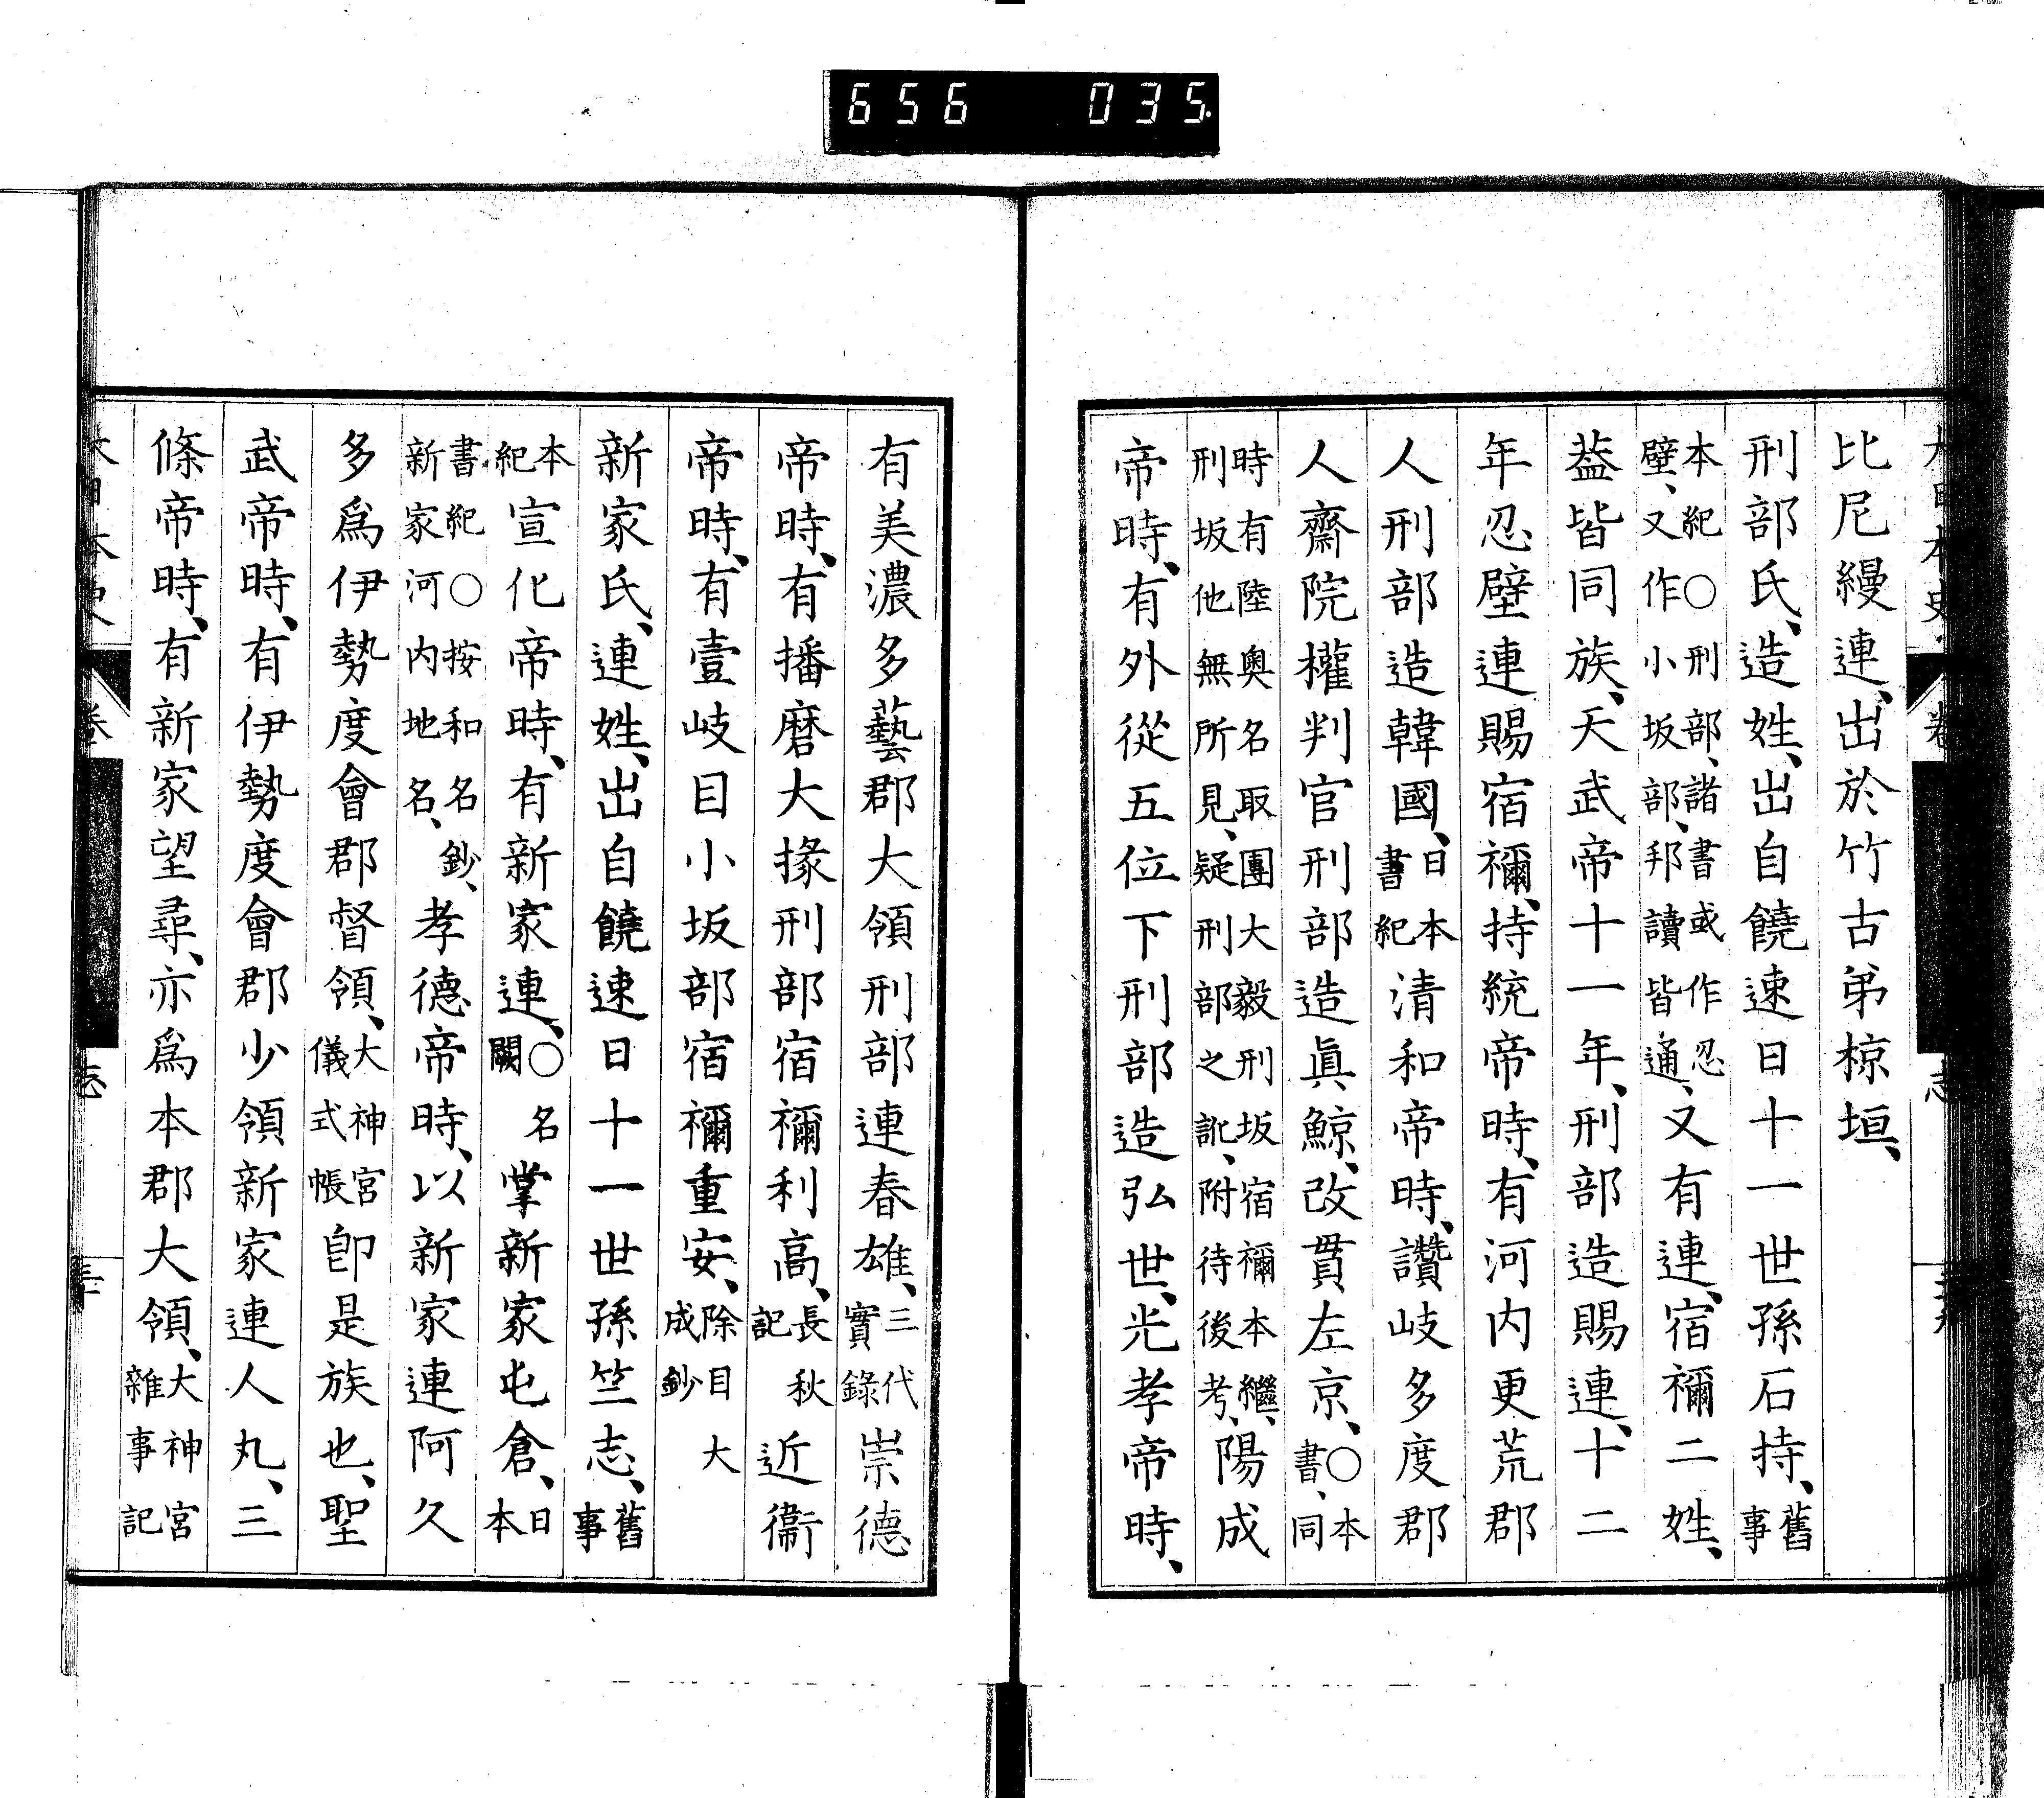 656 035
比尼縵連、出於竹古弟椋垣、
刑部氏、造姓、出自饒速日十一世孫石持、舊事
本紀○刑部、諸書或作忍壁、又作小坂部、邦讀皆通、又有連、宿禰二姓、
蓋皆同族、天武帝十一年、刑部造賜連、十二
年忍壁連賜宿禰、持統帝時、有河内更荒郡
人刑部造韓國、日本書紀清和帝時、讚岐多度郡
人齋院權判官刑部造眞鯨、改貫左京、○本書、同
時有陸奥名取團大毅刑坂宿禰本繼、刑坂他無所見、疑刑部之訛、附待後考、陽成
帝時、有外從五位下刑部造弘世、光孝帝時、
有美濃多藝郡大領刑部連春雄、三代實錄崇德
帝時、有播磨大掾刑部宿禰利高、長秋記近衞
帝時、有壹岐目小坂部宿禰重安、除目大成鈔
新家氏、連姓、出自饒速日十一世孫竺志、舊事
本紀宣化帝時、有新家連、○名闕掌新家屯倉、日本
書紀○按和名鈔、新家河内地名、孝德帝時、以新家連阿久
多爲伊勢度會郡督領、大神宮儀式帳卽是族也、聖
武帝時、有伊勢度會郡少領新家連人丸、三
條帝時、有新家望尋、亦爲本郡大領、大神宮雜事記
大日本史 卷 志